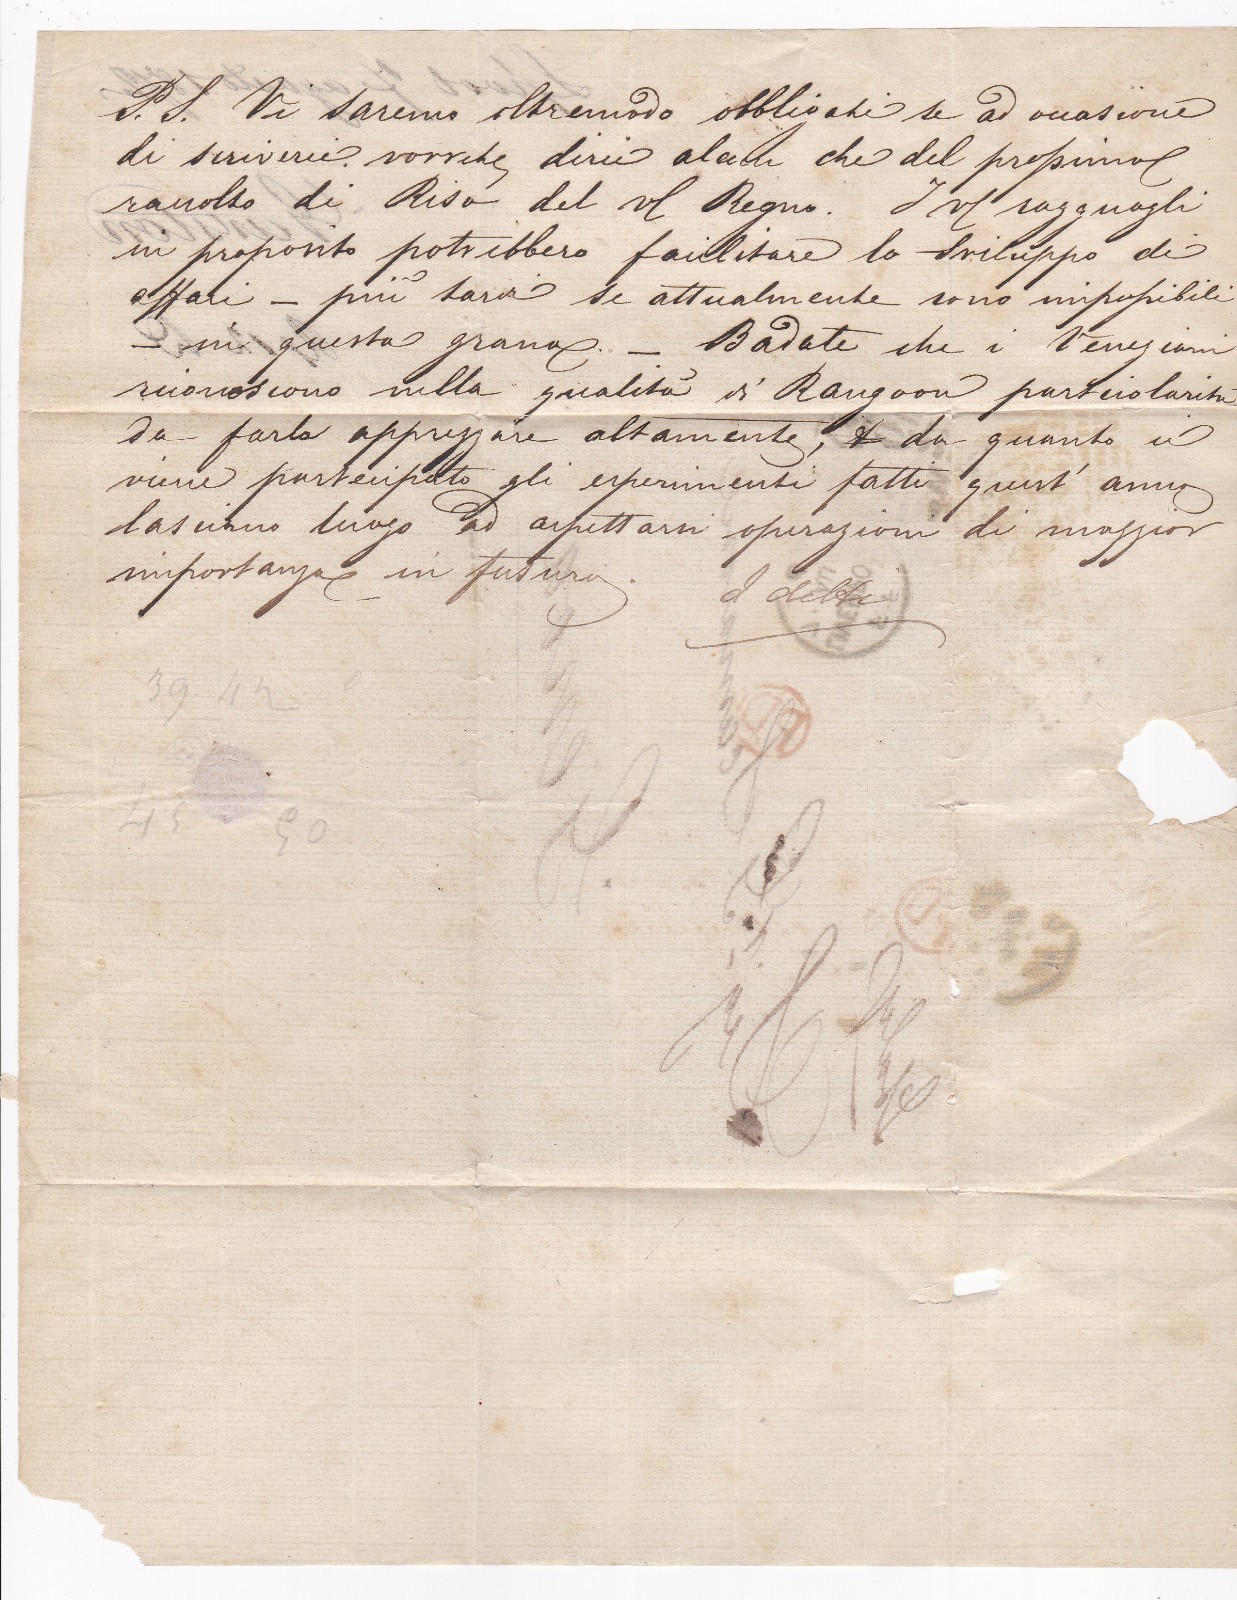 P. S. Vi saremo oltremodo obbligati se ad occasione
di scriverci vorrete dirci alcun che del prossimo
raccolto di Riso del vs Regno. I vs ragguagli
in proposito potrebbero facilitare lo sviluppo di
affari – più tardi se attualmente sono impossibili
– in questa grana. – Badate che i Veneziani
riconoscono nella qualità di Rangoon particolarità
da farla apprezzare altamente, & da quanto ci
viene partecipato gli esperimenti fatti quest' anno
lasciano luogo ad aspettarsi operazioni di maggior
importanza in futuro.
I detti
39 42
45 90
PD